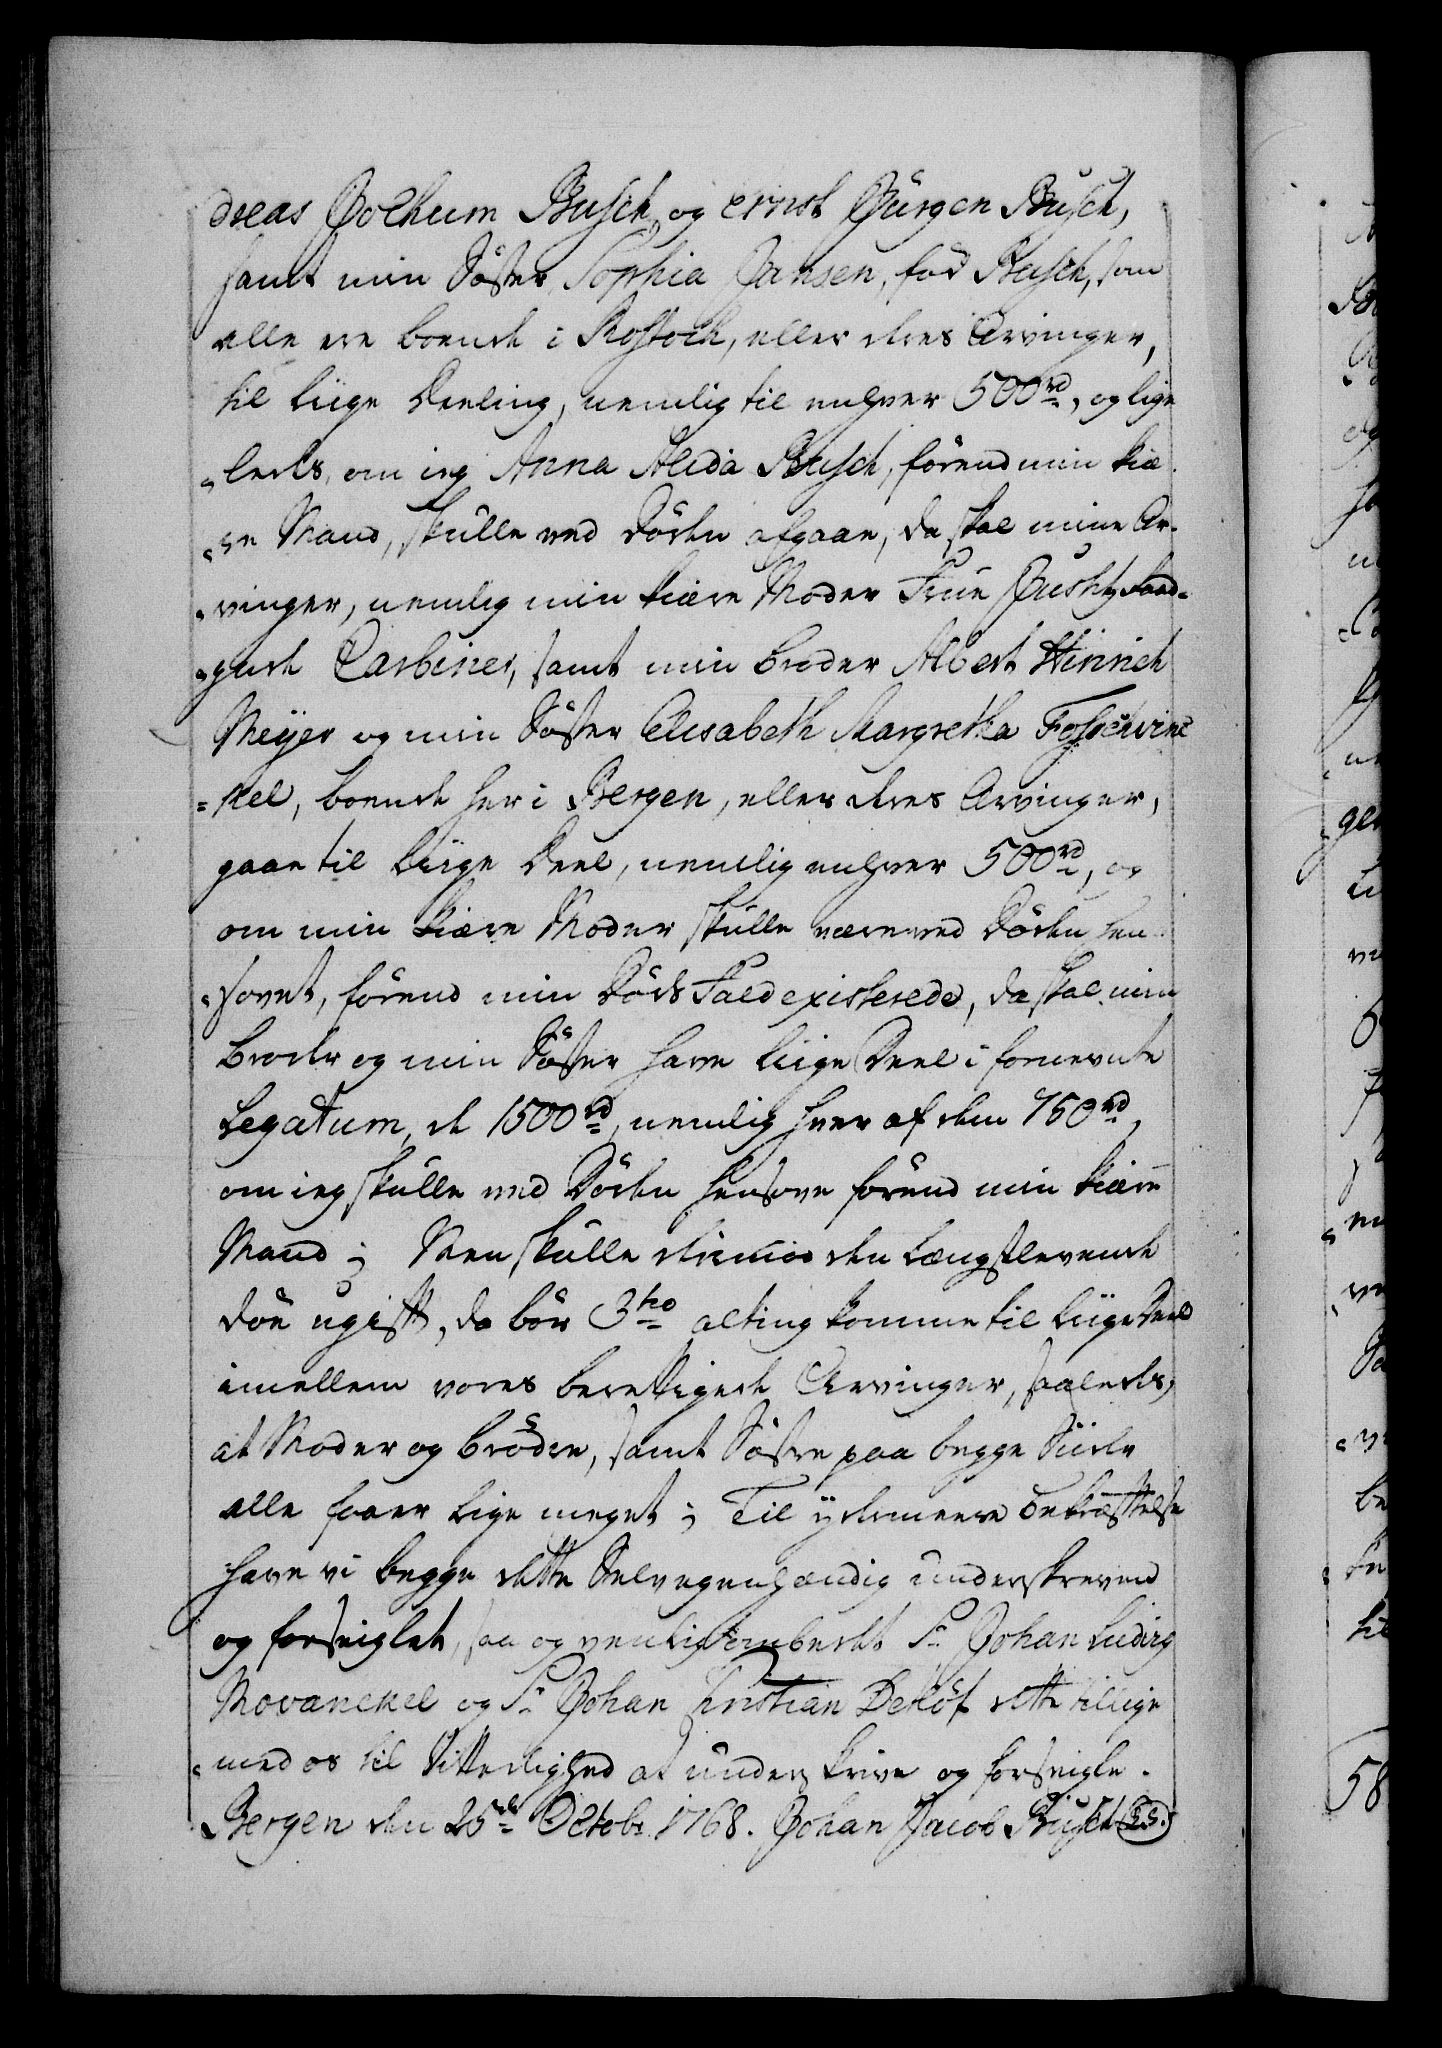 dreas Jochum Busch, og Ernst Jürgen Busch,
samt min Söster Sophia Jansen, fød Busch, som
alle ere boende i Rostock, eller deres Arvinger,
til liige Deeling, nemlig til enhver 500 rd, og lige
ledes, om jeg Anna Alida Busch, förend min kiæ
re Mand, skulle ved Döden afgaae, da skal mine Ar-
vinger, nemlig min kiære Moder Frue
Carbiner, samt min broder Albert Hinrich
Meÿer og min Söster Elisabeth Margretha
kel, boende her i Bergen, eller deres Arvinger,
gaae til liige Deel, nemlig enhver 500 rd, og
om min kiære Moder skulle være ved Döden hen
sovet, förend min Döds Fald existerede, da skal min
Broder og min Söster have liige Deel i fornevnte
Legatum, de 1500 rd, nemlig hver af dem 750 rd,
om jeg skulle ved Döden hensove förend min kiære
Mand; Men skulle derimod den Længstlevende
döe ugift, da bör 3tio alting komme til liige Deel
imellem vores berettigede Arvinger, saaledes,
at Moder og brödre, samt Söstre paa begge Siider
alle faaer lige meget; Til ÿdermeere bekræftelse
have vi begge dette Selvegenhændig underskreven
og forseiglet, saa og venligst ombedet Sr. Johan Ludvig
Movanckel og Sr. Johan Christian Detlöf dette tillige
med os til Vitterlighed at underskrive og forseigle.
Bergen den 25de Octobr. 1768. Johan Jacob Busch (L.S.)
58